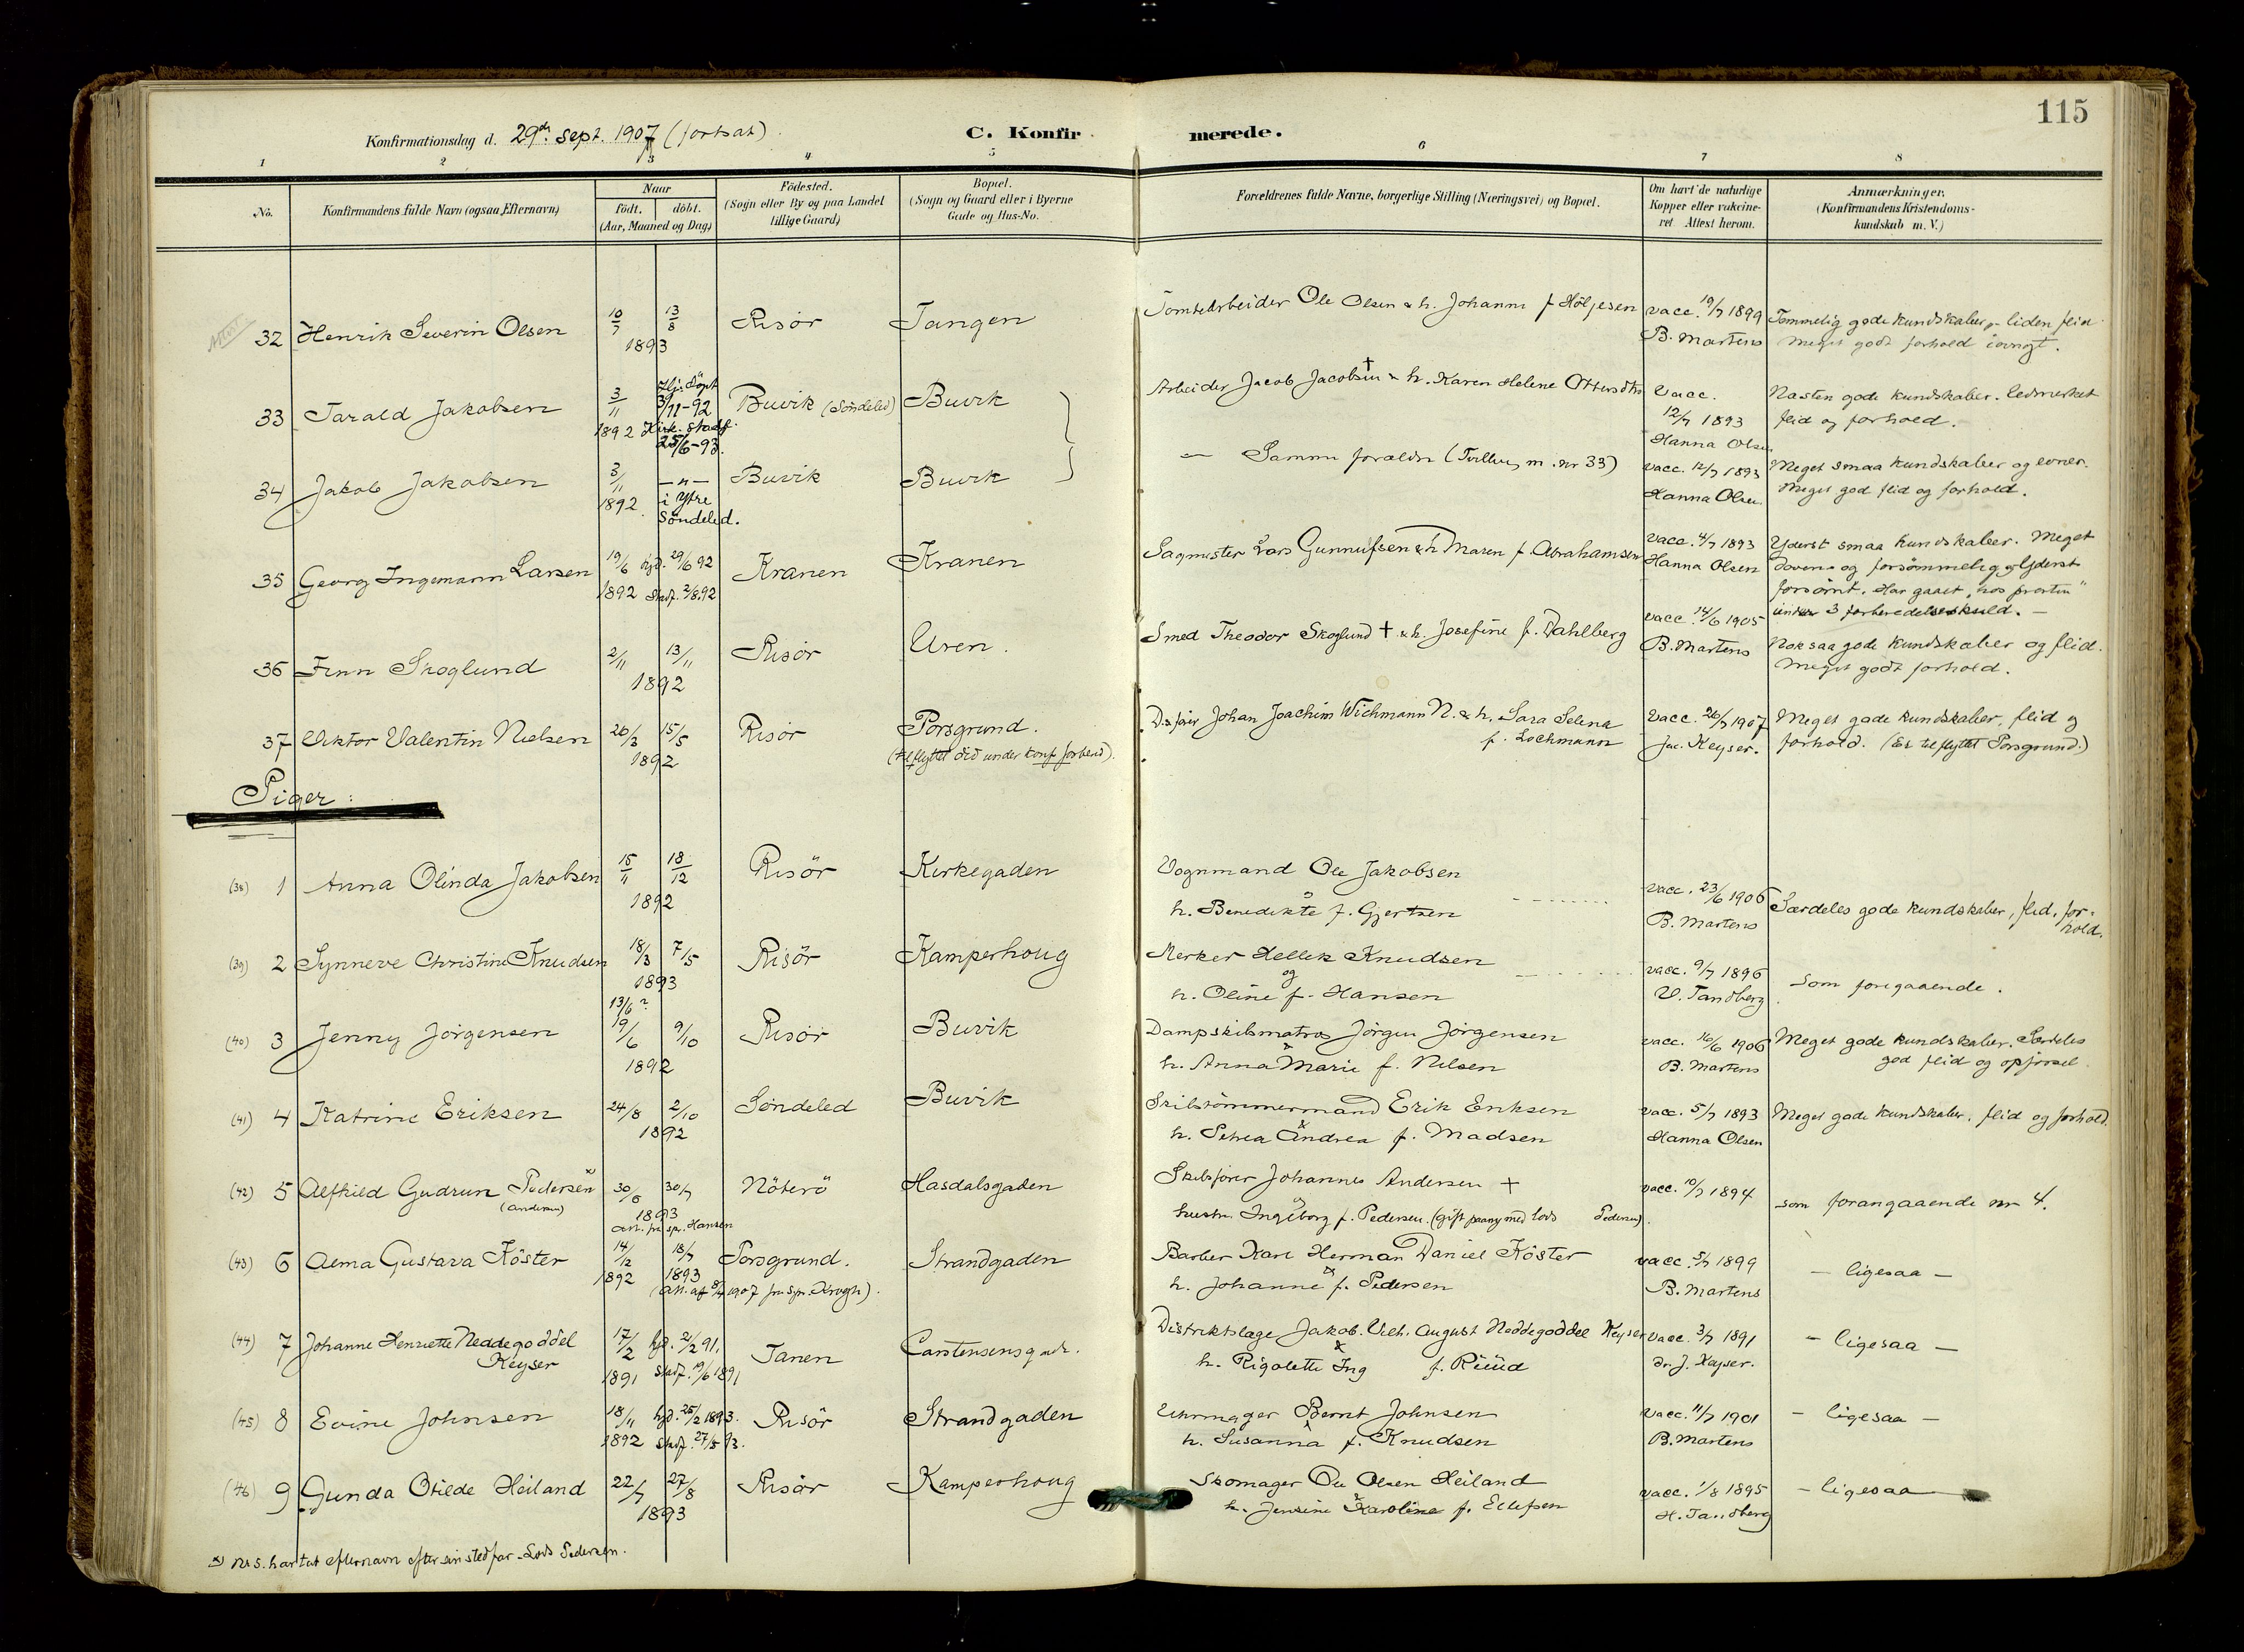 115
Konfirmationsdag d. 29de sept. 1907 (fortsat).
C. Konfirmerede.
1 2 3 4 5 6 7 8
No.
Konfirmandens fulde Navn (ogsaa Efternavn)
Naar
födt. döbt.
(Aar, Maaned og Dag)
Födested.
(Sogn eller By og paa Landet
tillige Gaard)
Bopæl.
(Sogn og Gaard eller i Byerne
Gade og Hus-No.
Forældrenes fulde Navne, borgerlige Stilling (Næringsvei) og Bopæl.
Om havt de naturlige
Kopper eller vakcine-
ret Attest herom.
Anmærkninger.
(Konfirmandens Kristendoms-
kundskab m. V.)
32 Henrik Severin Olsen 10/7 13/8 1893 Risör Tangen
Tomtearbeider Ole Olsen & h. Johanne f Höljesen
vacc. 19/7 1899
B. Martens
Temmelig gode kundskaber, - liden flid.
Meget godt forhold iøvrigt.
33 Tarald Jakobsen 3/11 1892 Hj. döpt 3/11-92 Kirk. stadf. 25/6-93. Buvik (Söndeled) Buvik
Arbeider Jacob Jacobsen † & h. Karen Helene Ottersdtr
Vacc.
12/7 1893
Hanna Olsen
Næsten gode kundskaber. Udmerket
flid og forhold.
34 Jakob Jakobsen 3/11 1892 — " — i Ytre Söndeled. Buvik Buvik
— Samme forældre (Tvilling m. nr 33)
vacc. 12/7 1893
Hanna Olsen
Meget smaa kundskaber og evner.
Meget god flid og forhold.
35 Georg Ingemann Larsen 19/6 1892 hjd. 29/6 92 Stadf. 2/8.92 Kranen Kranen
Sagmester Lars Gunnufsen & h Maren f. Abrahamsen
vacc. 4/7 1893
Hanna Olsen
Yderst smaa kundskaber. Meget
doven - og forsömmelig. Yderst
forsömt. Har gaaet "hos presten"
under 3 forberedelseskuld. —
36 Finn Skoglund 2/11 13/11 1892 Risör Uren.
Smed Theodor Skoglund † & h. Josefine f. Dahlberg
vacc. 14/6 1905
B. Martens
Nok saa gode kundskaber og flid.
Meget godt forhold.
37 Viktor Valentin Nielsen 26/3 15/5 1892 Risör Porsgrund.
(tilflyttet did under konf. forbered).
Johan Joachim Wichmann N. & h. Sara Selena
f. Lochmann
Vacc. 26/7 1907
Jac. Keyser.
Meget gode kundskaber, flid og
forhold. (Er tilflyttet Porsgrund.)
Piger:
(38) 1 Anna Olinda Jakobsen 15/11 18/12 1892 Risör Kirkegaden
Vognmand Ole Jakobsen
h. Benedikte f. Gjertsen
vacc. 23/6 1906
B. Martens
Særdeles gode kundskaber, flid, for-
hold.
(39) 2 Synneve Christine Knudsen 18/3 7/5 1893 Risör Kamperhoug
Merker Hellek Knudsen
og
h. Oline f. Hansen
vacc. 9/7 1896
V. Tandberg
Som foregaaende.
(40) 3 Jenny Jörgensen 13/6? 19/6 9/10 1892 Risör Buvik
Dampskibsmatros Jörgen Jörgensen
h. Anna Marie f. Nilsen
vacc. 16/6 1906
B. Martens
Meget gode kundskaber. Særdeles
god flid og opførsel.
(41) 4 Katrine Eriksen 24/8 2/10 1892 Söndeled Buvik
Skibstömmermand Erik Eriksen
h. Petrea Andrea f. Madsen
vacc. 5/7 1893
Hanna Olsen
Meget gode kundskaber, flid og forhold.
(42) 5 Alfhild Gudrun Pedersen x)
(Andersen)
30/6 30/7 1893 Nöterö Hasdalsgaden
att. fra spr. Hansen
Skibsförer Johannes Andersen †
hustr. Ingeborg f. Pedersen. (gift paany med Lods Pedersen).
vacc. 10/7 1894
som forangaaende nr 4.
(43) 6 Alma Gustava Köster 14/12 1892 18/7 1893 Porsgrund. Strandgaden
(att. af 8/4 1907 fra spr. Krogh).
Barber Karl Herman Daniel Köster
h. Johanne f. Pedersen
vacc. 5/7 1899
B. Martens
— ligesaa —
(44) 7 Johanne Henriette Neddegoddel
Keyser
17/2 1891 hjd. 21/2 91. Stadf. 19/6 1891 Tanen Carstensensgade.
Distriktslæge Jakob. Vilh. August Neddegoddel Keyser
h. Rigolette Ing f. Rüüd
vacc. 3/7 1891
dr. J. Keyser.
— ligesaa —
(45) 8 Evine Johnsen 18/11 1892 hjd. 25/2 1893. Stadf. 27/5 93. Risör Strandgaden
Uhrmager Bernt Johnsen
h. Susanna f. Knudsen
vacc. 11/7 1901
B. Martens
— ligesaa —
(46) 9 Gunda Otilde Heiland 22/7 27/8 1893 Risör Kamperhoug
Skomager Ole Olsen Heiland
h. Jensine Karoline f. Ellefsen
vacc. 1/8 1895
H. Tandberg
— ligesaa —
x) Nr 5. har tat efternavn efter sin stedfar - Lods Pedersen.